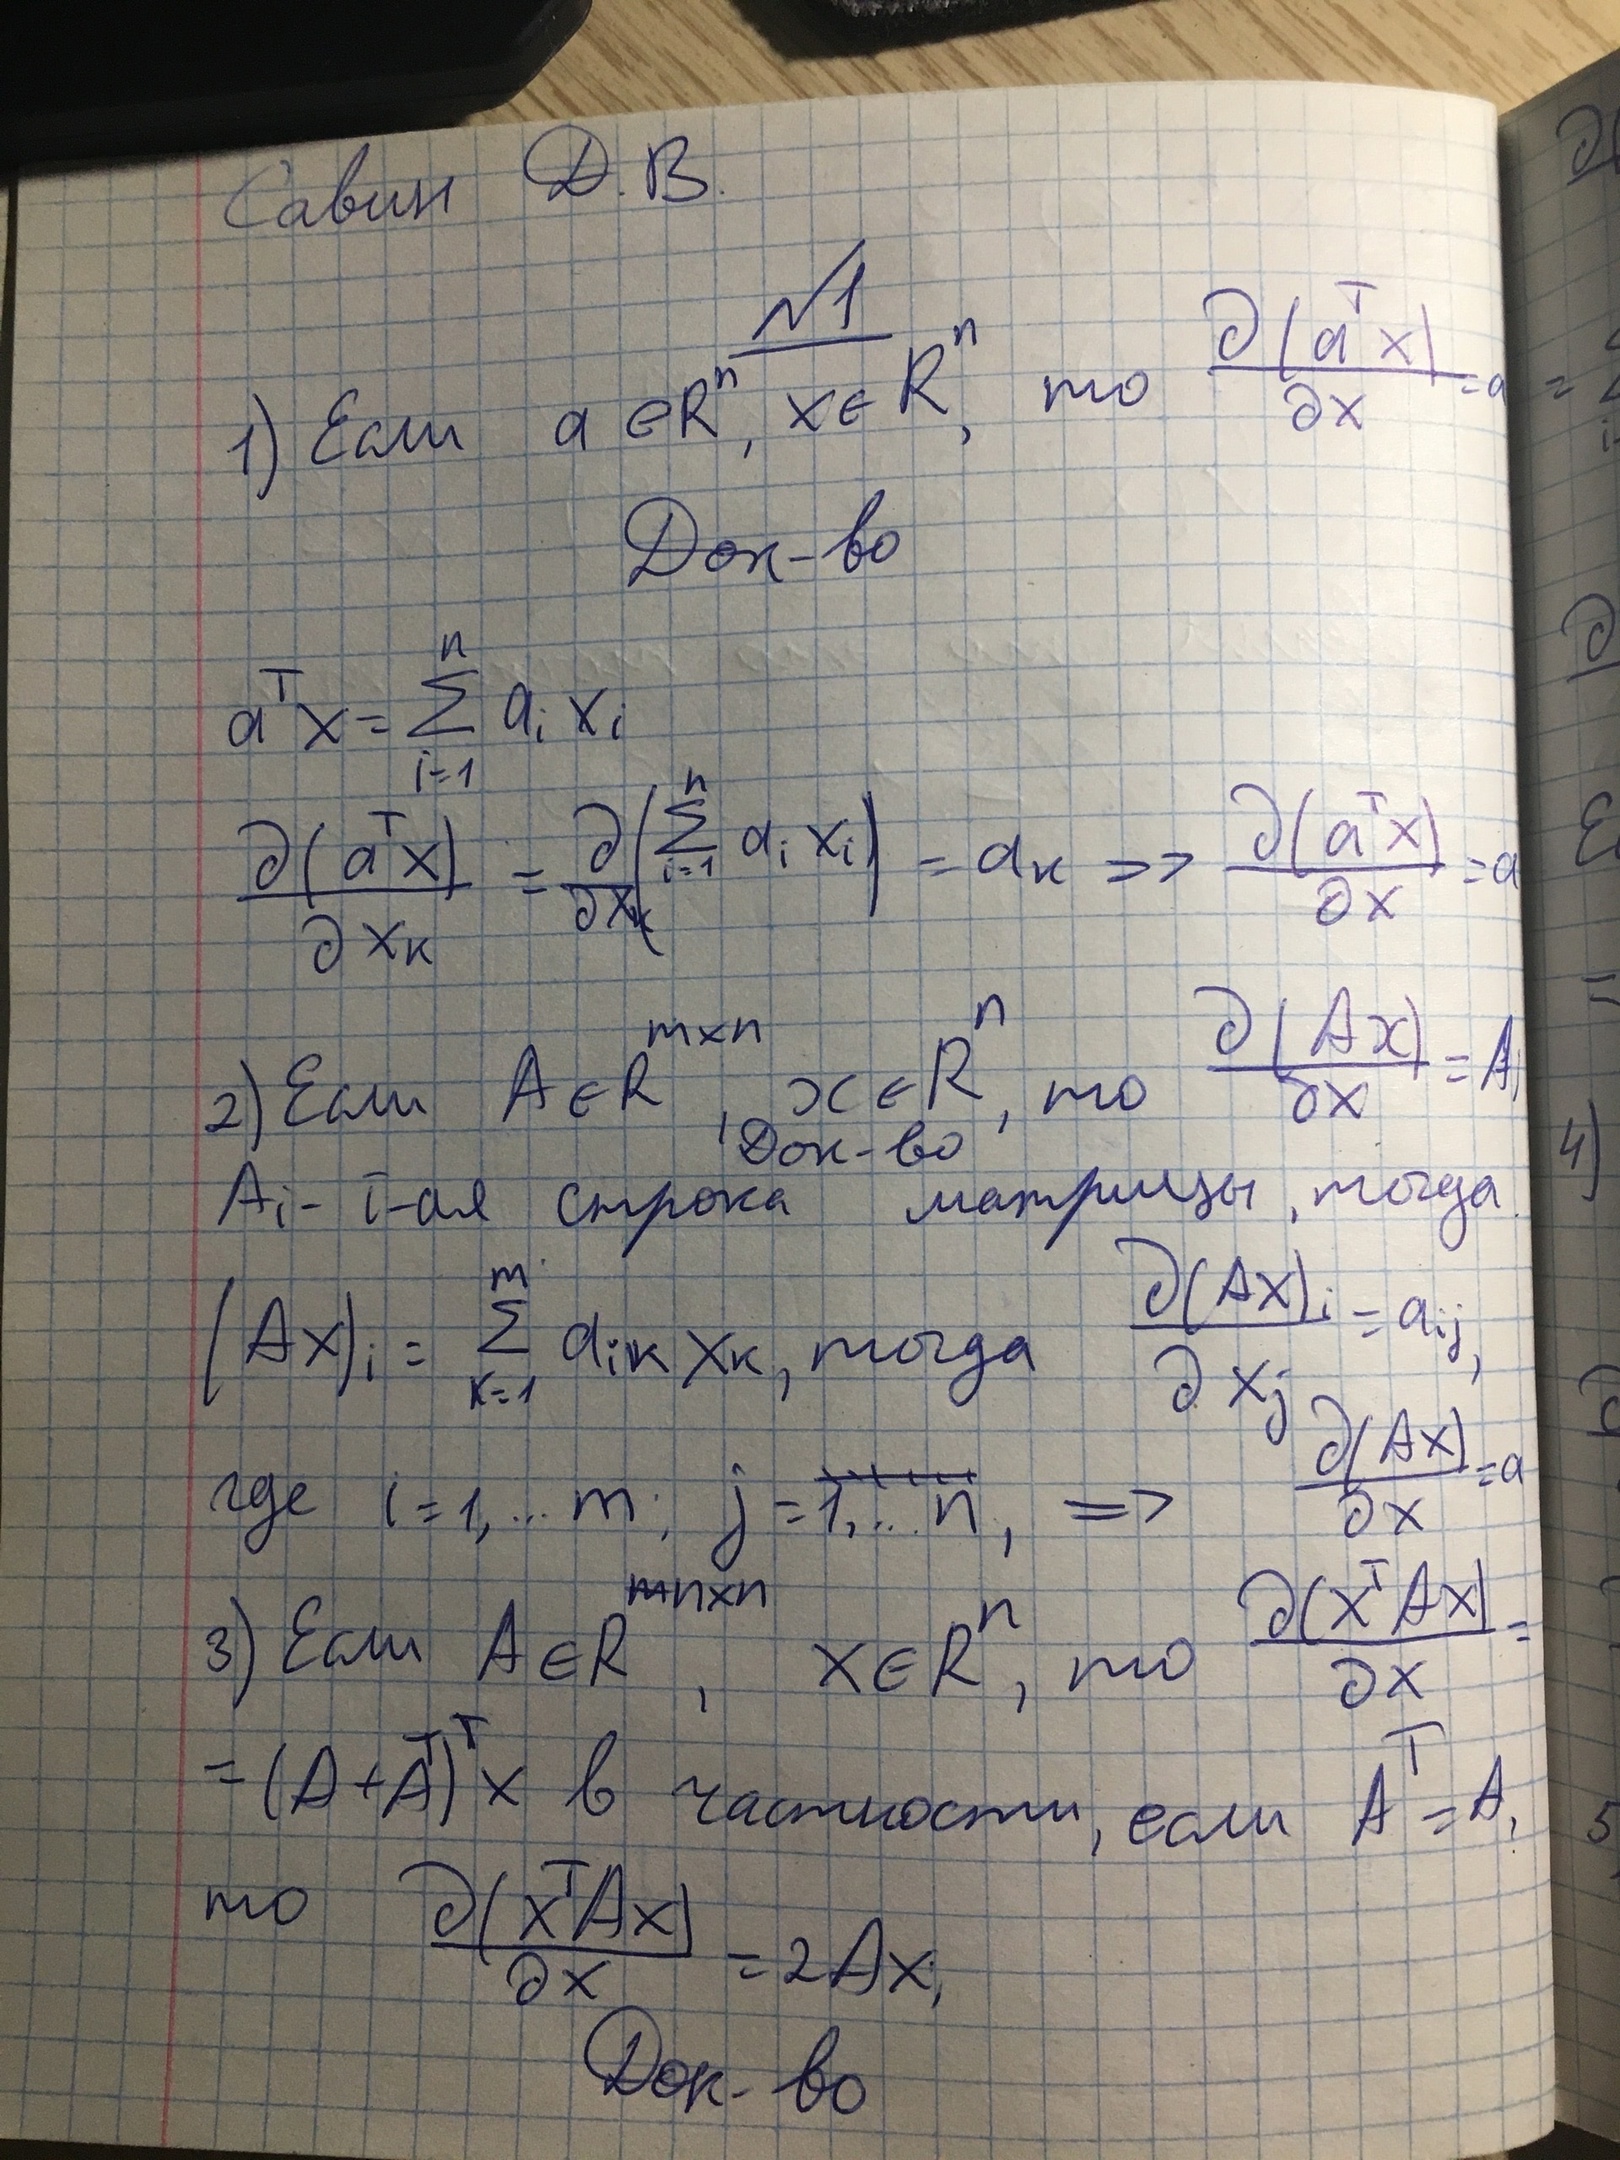 Савин Д.В.
№1
1) Если a ∈ R^n, x ∈ R^n, то ∂(a^T x)/∂x = a
Док-во
a^T x = Σ_{i=1}^{n} a_i x_i
∂(a^T x)/∂x_k = ∂/∂x_k (Σ_{i=1}^{n} a_i x_i) = a_k => ∂(a^T x)/∂x = a
2) Если A ∈ R^{m×n}, x ∈ R^n, то ∂(Ax)/∂x = A,
Док-во
A_i - i-ая строка матрицы, тогда
(Ax)_i = Σ_{k=1}^{m} a_{ik} x_k, тогда ∂(Ax)_i/∂x_j = a_{ij},
где i = 1,... m; j = 1,... n, => ∂(Ax)/∂x = a
3) Если A ∈ R^{n×n}, x ∈ R^n, то ∂(x^T A x)/∂x =
= (A + A^T)^T x в частности, если A^T = A,
то ∂(x^T A x)/∂x = 2Ax,
Док-во
4)
5